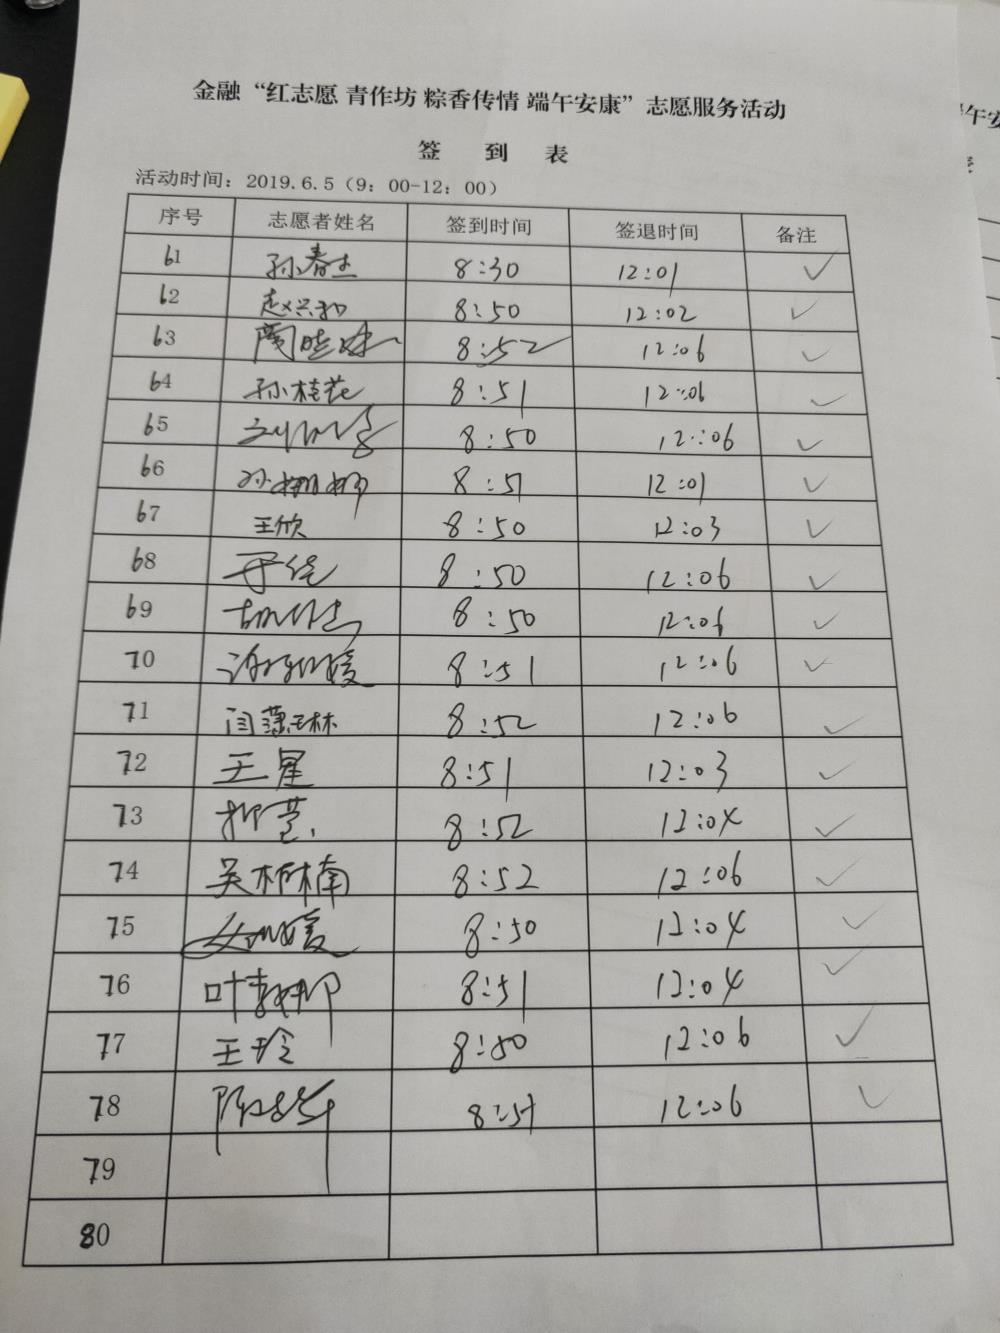 金融“红志愿 青作坊 粽香传情 端午安康”志愿服务活动
签 到 表
活动时间：2019.6.5（9：00-12：00）
序号 志愿者姓名 签到时间 签退时间 备注
61 孙春士 8:30 12:01 ✓
62 赵兴和 8:50 12:02 ✓
63 8:52 12:06 ✓
64 孙桂花 8:51 12:06 ✓
65 8:50 12:06 ✓
66 孙娜娜 8:51 12:01 ✓
67 王欣 8:50 12:03 ✓
68 8:50 12:06 ✓
69 8:50 12:06 ✓
70 8:51 12:06 ✓
71 8:52 12:06 ✓
72 王星 8:51 12:03 ✓
73 8:52 12:04 ✓
74 吴楠 8:52 12:06 ✓
75 8:50 12:04 ✓
76 8:51 12:04 ✓
77 王玲 8:50 12:06 ✓
78 8:51 12:06 ✓
79
80
午安
表